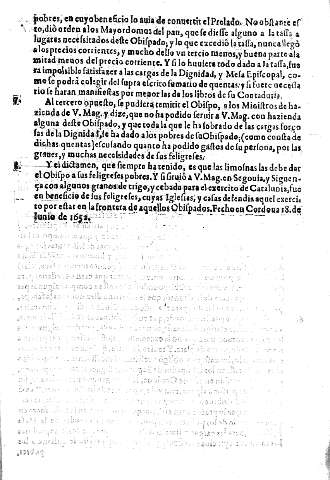 pobres, en cuyo beneficio lo auia de conuertir el Prelado. No obstante es
to, dió orden a los Mayordomos del pan, que se diesse alguno a la tassa a
lugares necessitados deste Obispado, y lo que excedió la tassa, nunca llegó
a los precios corrientes, y mucho dello vn tercio menos, y buena parte a la
mitad menos del precio corriente. Y si lo huuiere todo dado a la tassa, fue
ra impossible satisfazer a las cargas de la Dignidad, y Mesa Episcopal, co-
mo se podrá colegir del supra escrito sumario de quentas, y si fuere necessa
rio se haran manifiestas por menor las de los libros de su Contaduria.
7. Al tercero opuesto, se pudiera remitir el Obispo, a los Ministros de ha-
zienda de V. Mag. y dize, que no ha podido seruir a V. Mag. con hazienda
alguna deste Obispado, y que toda la que le ha sobrado de las cargas forço
sas de la Dignidad, se, la ha dado a los pobres de su Obispado, (como consta de
dichas quentas) escusando quanto ha podido gastos de su persona, por las
graues, y muchas necessidades de sus feligreses.
8. Y el dictamen, que siempre ha tenido, es que las limosnas las debe dar
el Obispo a sus feligreses pobres. Y si siruió a V. Mag. en Segouia, y Siguen-
ça con algunos granos de trigo, y cebada para el exercito de Cataluña, fue
en beneficio de sus feligreses, cuyas Iglesias, y casas defendia aquel exerci
to por estar en la frontera de aquellos Obispados. Fecho en Cordoua 18. de
Iunio de 1652.